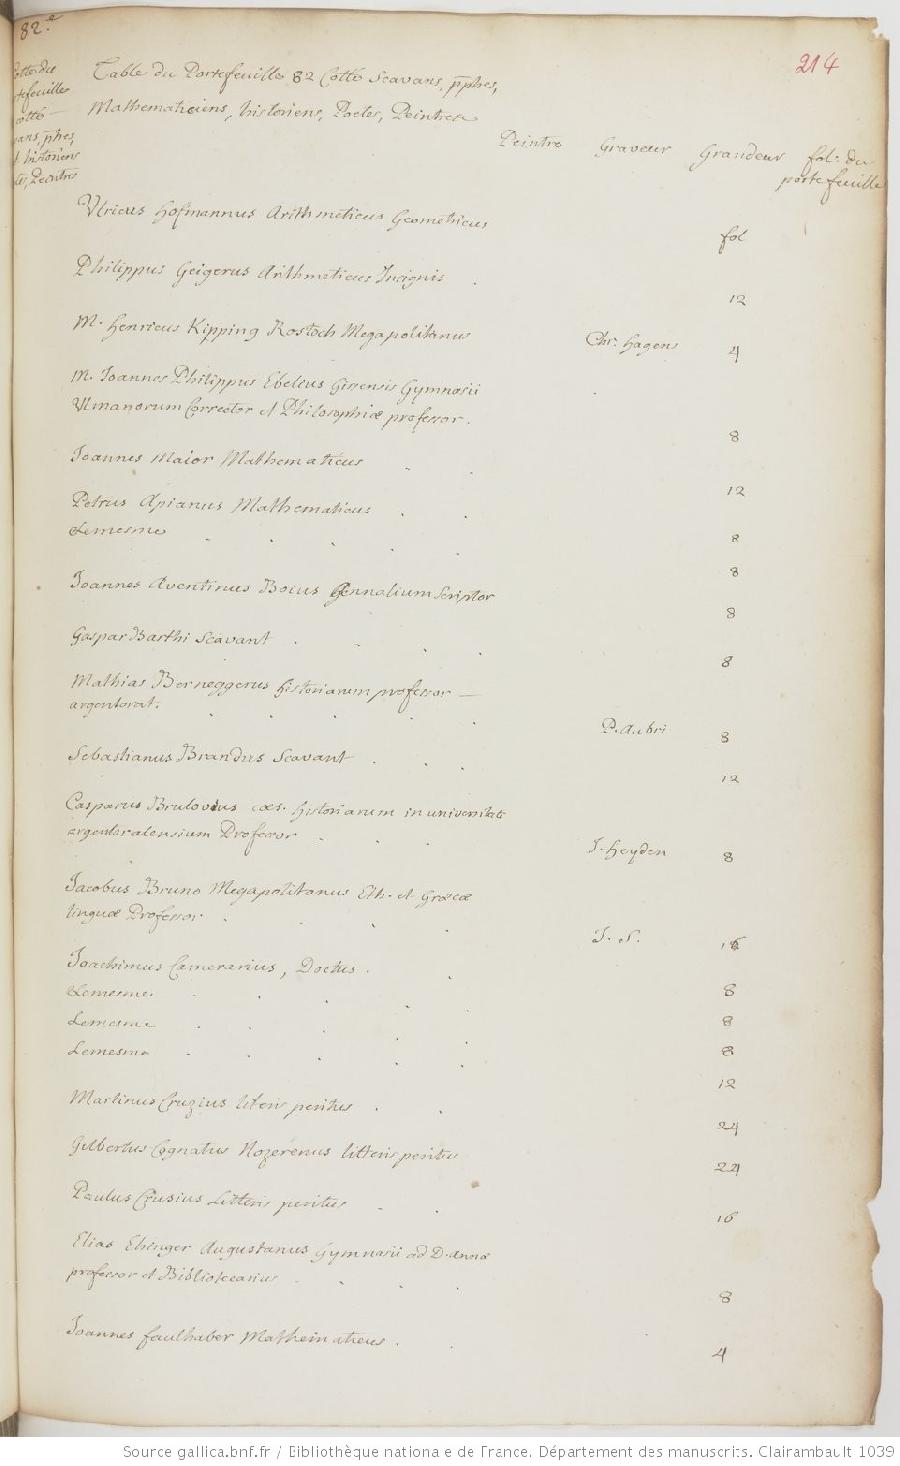 82.e
214
Cotte du
portefeuille
cotté
Table du Portefeuille 82 Cotté Scavans, pphes,
Mathematiciens, historiens, Poetes, Peintres
Peintre Graveur Grandeur fol. du
portefeuille
Ulricus Hofmannus Arithmeticus Geometricus
fol
Philippus Geigerus Arithmeticus Insignis
12
M. Henricus Kipping Rostoch Megapolitanus Chr. Hagens 4
M. Joannes Philippus Ebelius Gissensis Gymnasii
Ulmanorum Correctør et Philosophiæ professor.
8
Joannes Maior Mathematicus
12
Petrus Apianus Mathematicus
8
Lemesme
8
Joannes Aventinus Boius Gennalium Scriptor
8
Gaspar Barthi Scavant
8
Mathias Berneggerus historiarum professor
argentorat. P. Aubri 8
Sebastianus Brandus Scavant
12
Casparus Brulovius cæs. historiarum in universitate
argentoratensium Professor J. Heyden 8
Jacobus Bruno Megapolitanus Eth. et Græcæ
linguæ Professor J. S. 16
Joachimus Camerarius, Doctus
8
Lemesme
8
Lemesme
8
Lemesme
12
Martinus Cruzius literis peritus
24
Gilbertus Cognatus Nozerenus litteris peritus
24
Paulus Crusius Litteris peritus
16
Elias Ehinger Augustanus Gymnasii ad D. Annæ
professor et Bibliotecarius
8
Joannes faulhaber Mathematicus
4
Source gallica.bnf.fr / Bibliothèque nationale de France. Département des manuscrits. Clairambault 1039